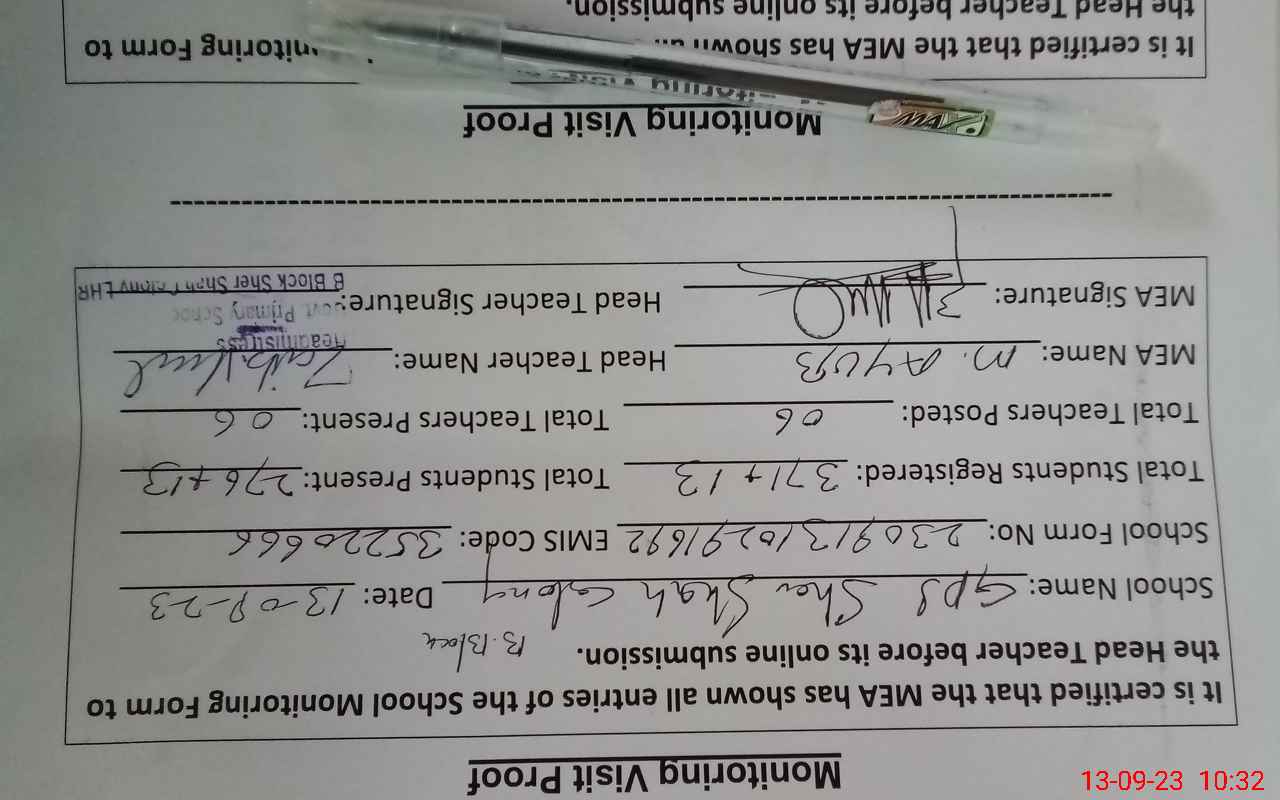 Monitoring Visit Proof
It is certified that the MEA has shown all entries of the School Monitoring Form to
the Head Teacher before its online submission. B. Block
School Name: GPS Sher Shah Colony Date: 13-09-23
School Form No: 23091310291692 EMIS Code: 35220666
Total Students Registered: 371+13 Total Students Present: 276+13
Total Teachers Posted: 06 Total Teachers Present: 06
MEA Name: M. AYUB Head Teacher Name:
Headmistress
MEA Signature: Head Teacher Signature: Govt. Primary School
B Block Sher Shah Colony LHR
Monitoring Visit Proof
It is certified that the MEA has shown Monitoring Form to
the Head Teacher before its online submission.
13-09-23 10:32